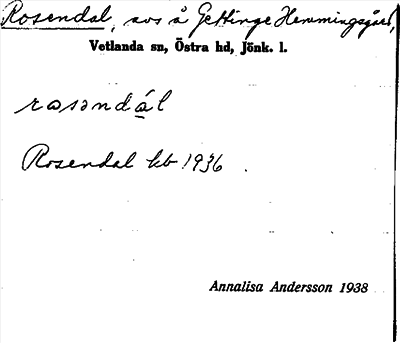 Rosendal, avs å Gettinge Hemmingsgård,
Vetlanda sn, Östra hd, Jönk. l.
rasəndál
Rosendal kb 1936.
Annalisa Andersson 1938